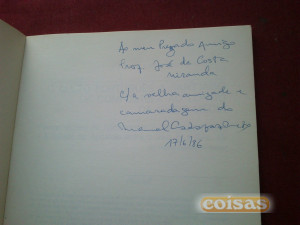 Ao meu Prezado Amigo
Prof. José da Costa
Miranda
c/ a velha amizade e
camaradagem do
Manuel
17/6/86
coisas